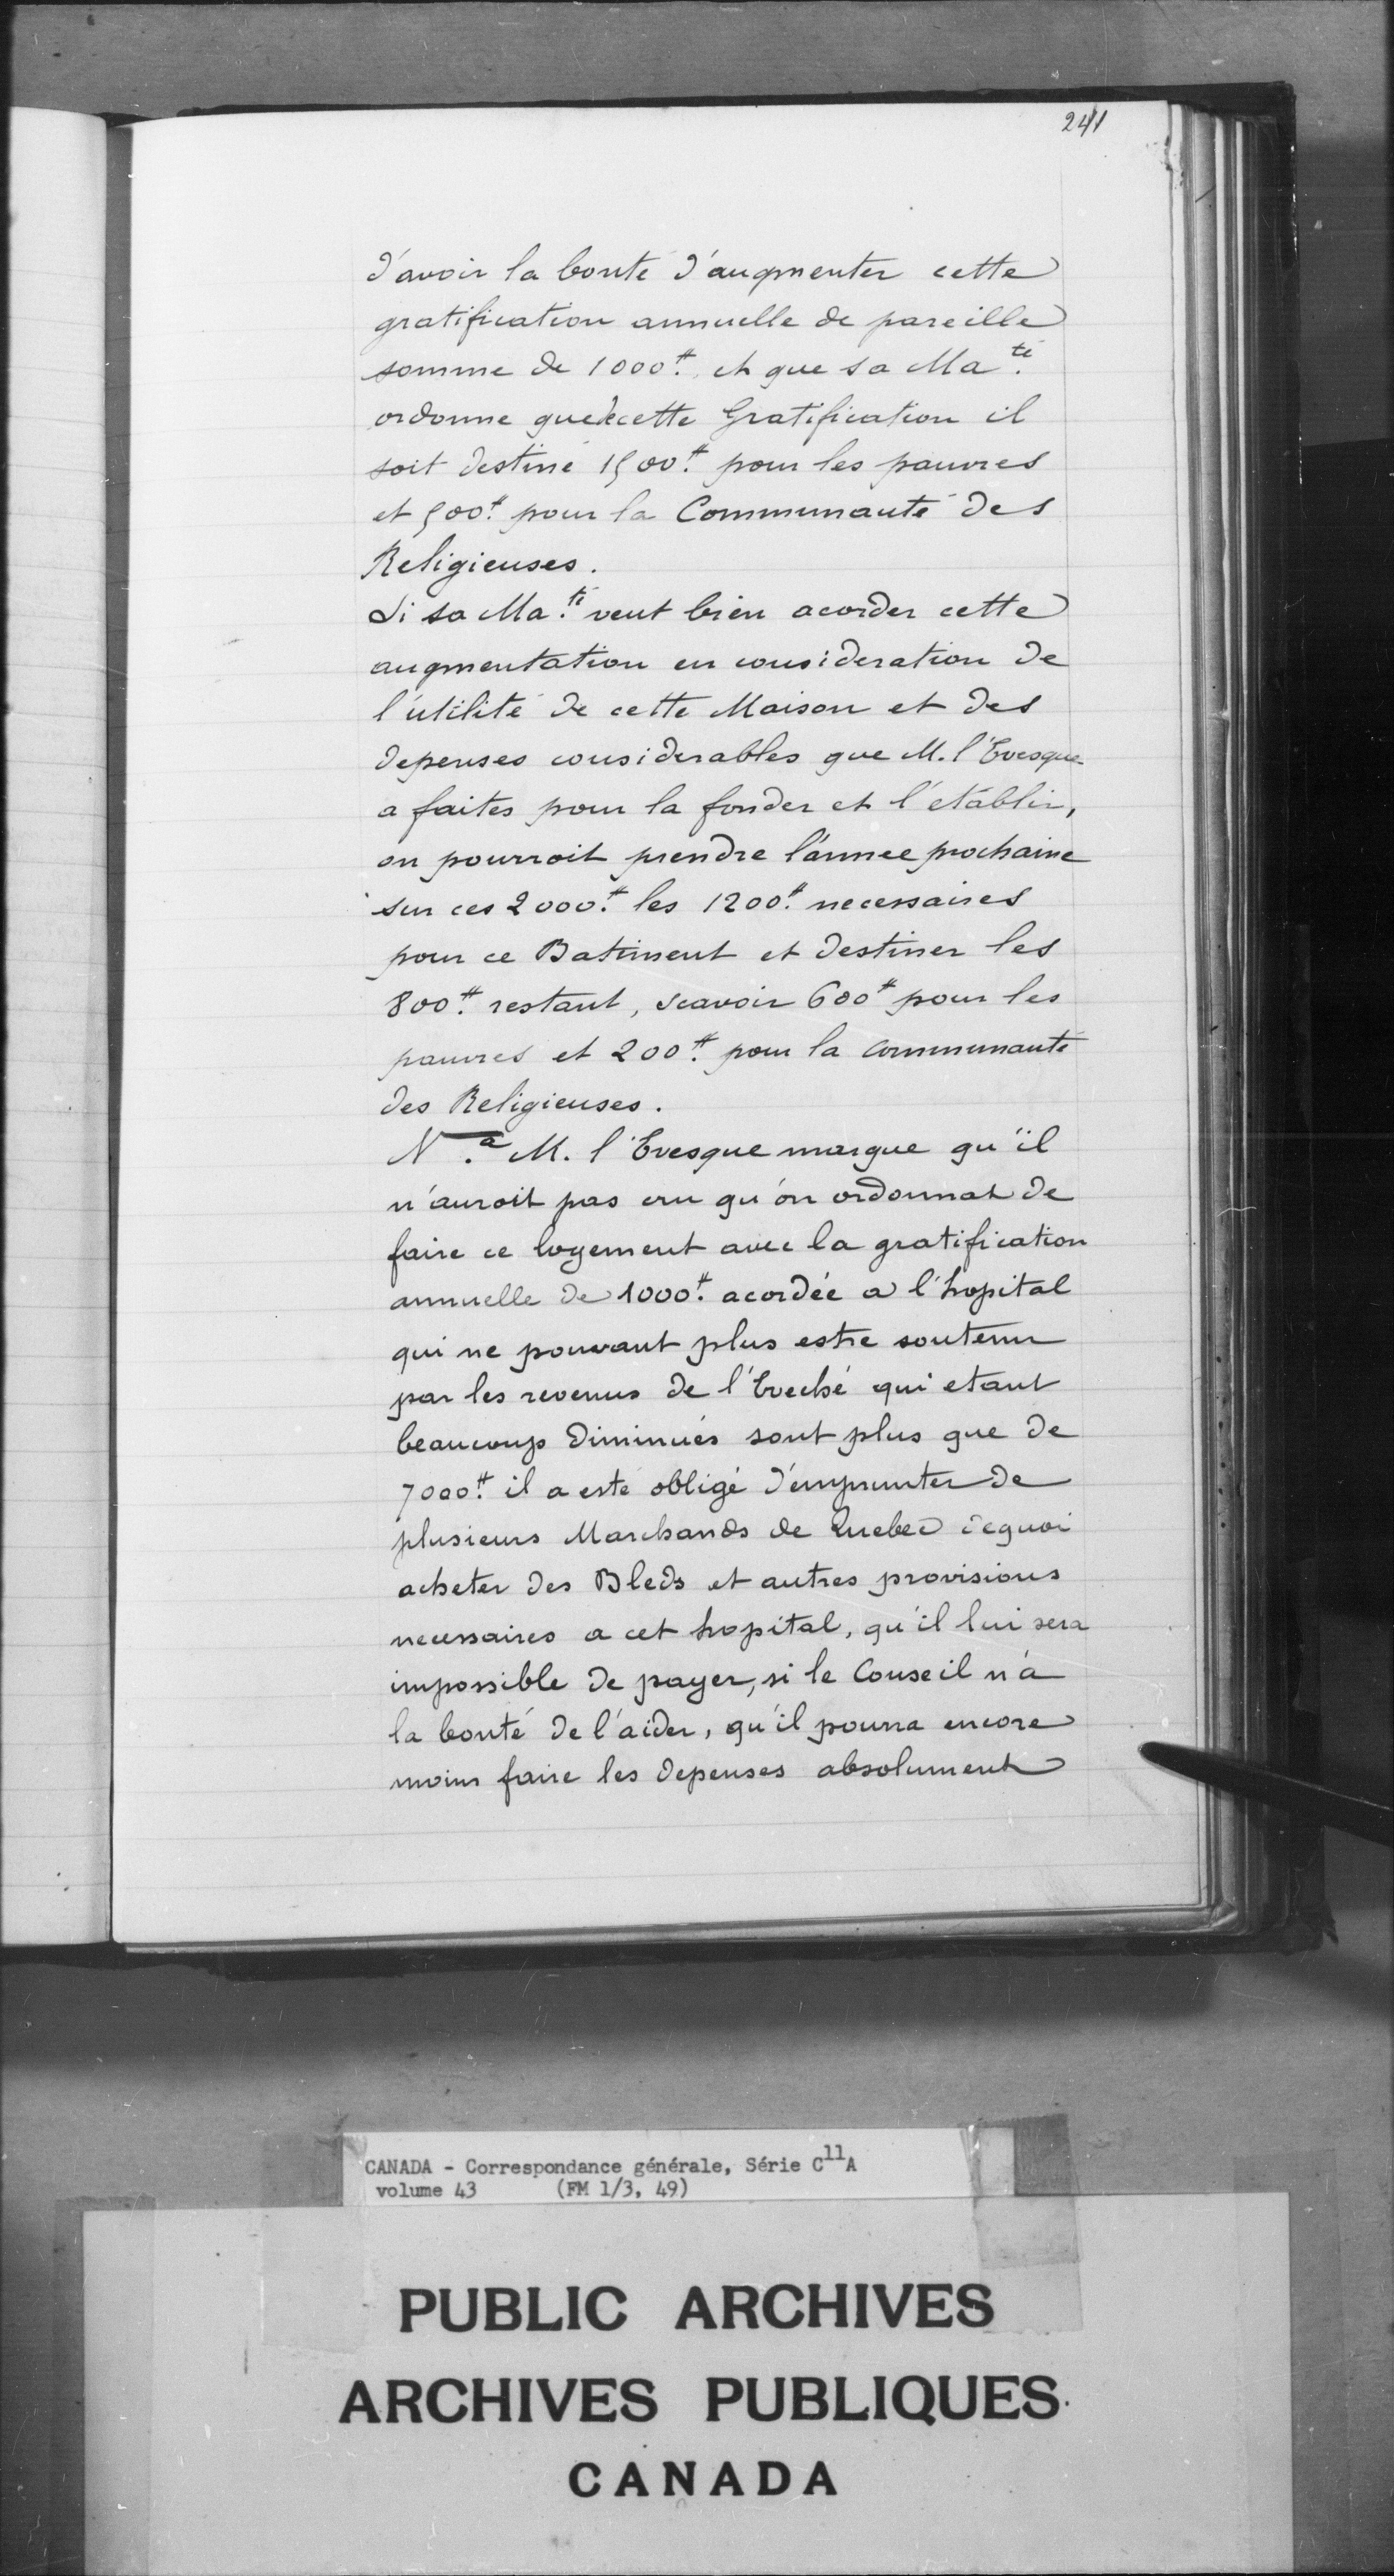 241
d'avoir la bonté d'augmenter cette
gratification annuelle de pareille
somme de 1000# et que sa Ma.té
ordonne que cette Gratification il
soit destiné 1500# pour les pauvres
et 500# pour la Communauté des
Religieuses.
Si sa Ma.té veut bien acorder cette
augmentation en consideration de
l'utilité de cette Maison et des
depenses considerables que M. l'Evesque
a faites pour la fonder et l'etablir,
on pourroit prendre l'année prochaine
sur ces 2000# les 1200# necessaires
pour ce Batiment et destiner les
800# restant, scavoir 600# pour les
pauvres et 200# pour la communauté
des Religieuses.
N.a M. l'Evesque marque qu'il
n'auroit pas cru qu'on ordonnat de
faire ce logement avec la gratification
annuelle de 1000# acordée a l'hopital
qui ne pouvant plus estre soutenu
par les revenus de l'Eveché qui etant
beaucoup diminués sont plus que de
7000# il a esté obligé d'emprunter de
plusieurs Marchands de Quebec dequoi
acheter des Bleds et autres provisions
necessaires a cet hopital, qu'il lui sera
impossible de payer, si le Conseil n'a
la bonté de l'aider, qu'il pourra encore
moins faire les depenses absolument
CANADA - Correspondance générale, Série C11A
volume 43 (FM 1/3, 49)
PUBLIC ARCHIVES
ARCHIVES PUBLIQUES
CANADA